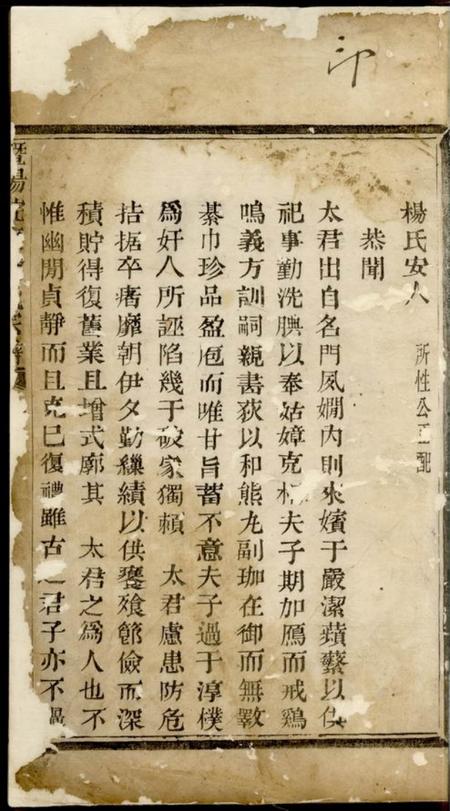 印
楊氏安人 所性公正配
恭聞
太君出自名門夙嫺內則來嬪于嚴潔蘋蘩以供
祀事勤洗腆以奉姑嫜克相夫子期加鴈而戒鷄
鳴義方訓嗣親書荻以和熊丸副珈在御而無斁
綦巾珍品盈庖而唯甘旨蓄不意夫子過于淳樸
爲奸人所誣陷幾于破家獨賴 太君慮患防危
拮据卒瘏靡朝伊夕勤纑績以供饔飱節儉而深
積貯得復舊業且增式廓其 太君之爲人也不
惟幽閒貞靜而且克已復禮雖古之君子亦不
暨陽 宗譜